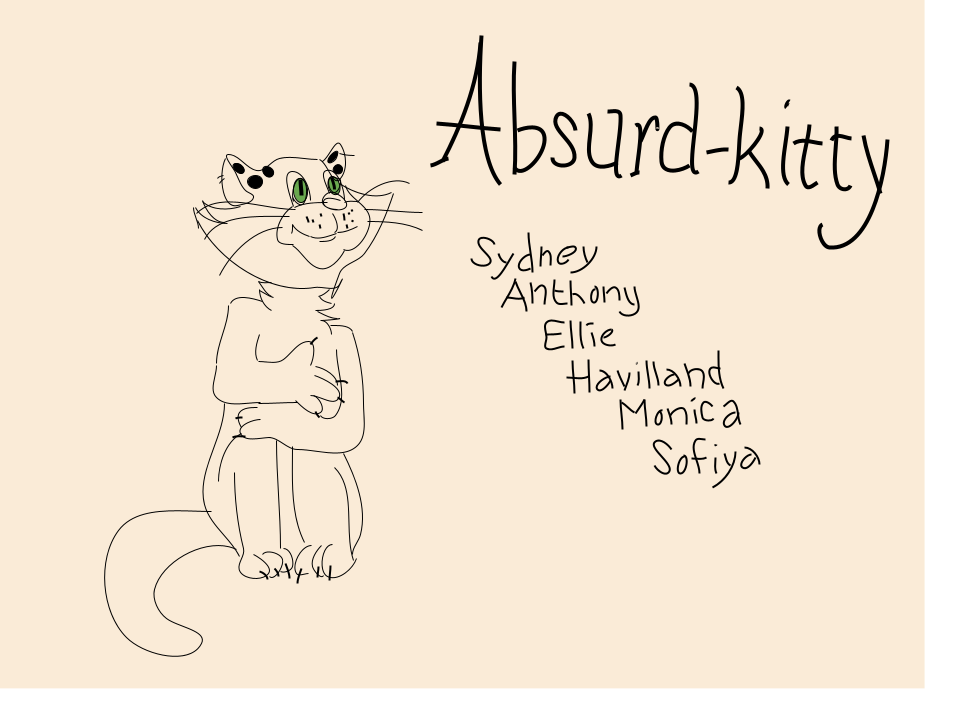 Absurd-kitty
Sydney
Anthony
Ellie
Havilland
Monica
Sofiya